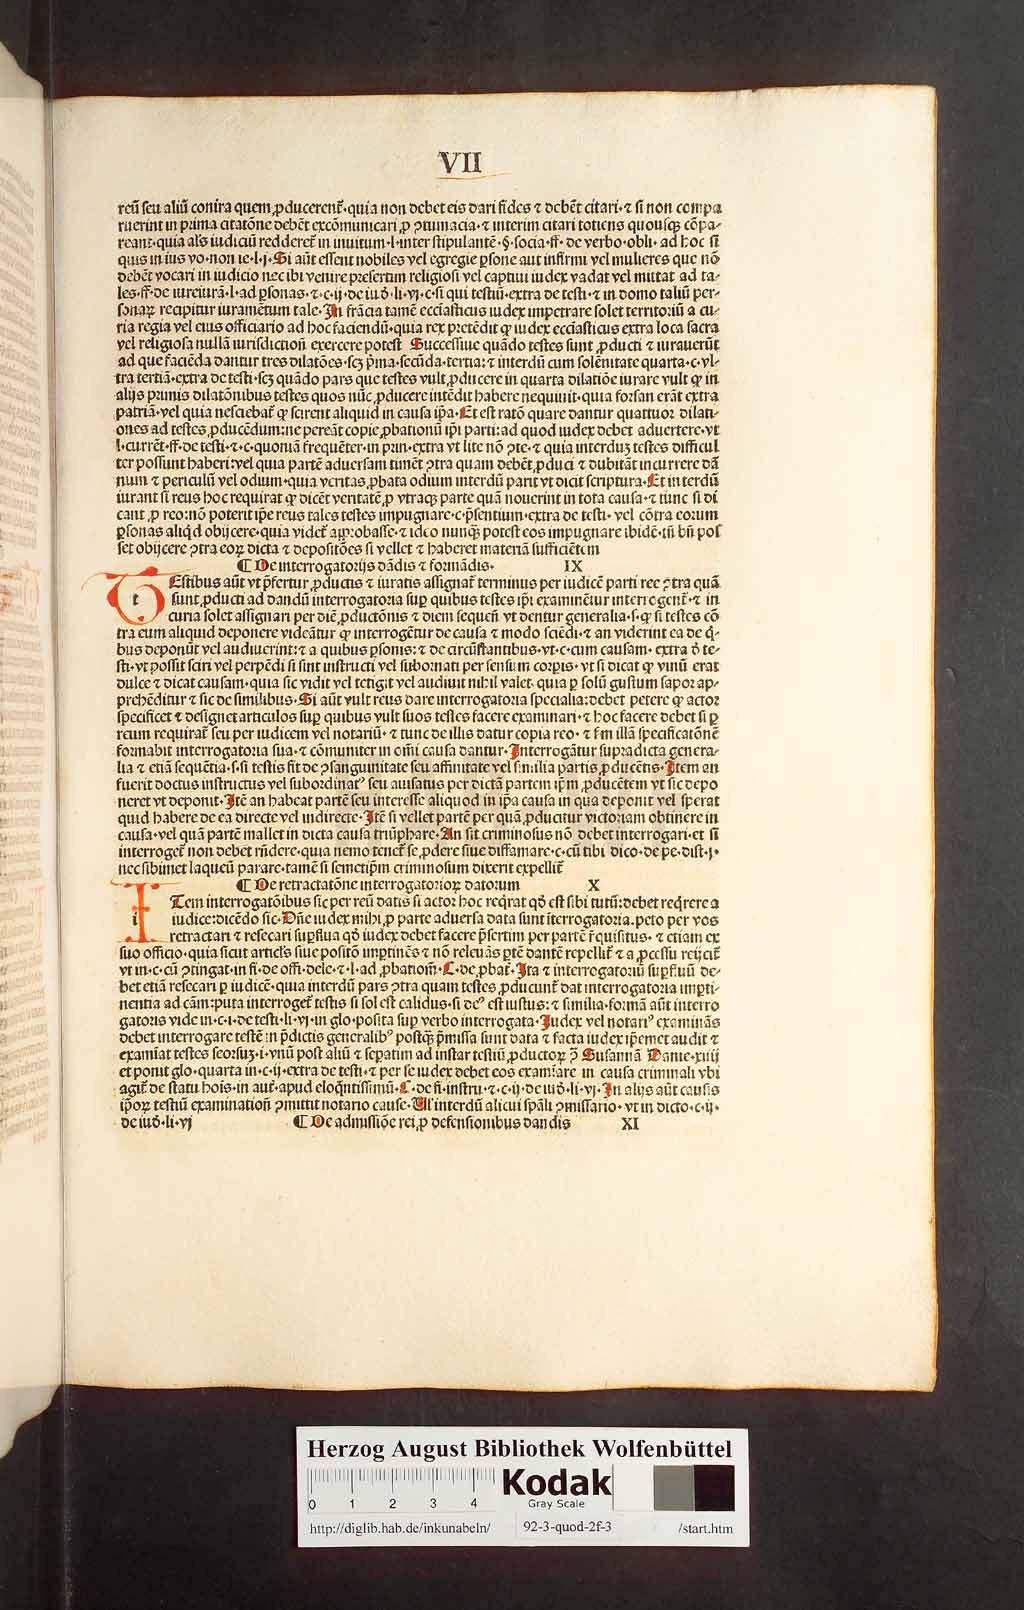 VII
reū seu aliū contra quem ꝓducerent᷑·quia non debet eis dari fides ⁊ debēt citari·⁊ si non compa
ruerint in prima citatōne debēt excōmunicari ꝓ ꝯtumacia·⁊ interim citari totiens quousqꝫ cōpa⸗
reant·quia al's iudiciū redderet᷑ in inuitum·l·inter stipulantē·§·socia·ff·de verbo·obli·ad hoc si
quis in ius vo·non ie·l·j·Si aūt essent nobiles vel egregie ꝑsone aut infirmi vel mulieres que nō
debēt vocari in iudicio nec ibi venire presertim religiosi vel captiui iudex vadat vel mittat ad ta⸗
les·ff·de iureiurā·l·ad ꝑsonas·⁊·c·ij·de iud̄·li·vj·c·si qui testiū·extra de testi·⁊ in domo taliū per⸗
sonaꝝ recipitur iuramētum tale·In frācia tamē ecclīasticus iudex impetrare solet territoriū a cu⸗
ria regia vel eius officiario ad hoc faciendū·quia rex pretēdit ꝙ iudex ecclīasticus extra loca sacra
vel religiosa nullā iurisdictionē exercere potest Successiue quādo testes sunt ꝓducti ⁊ iurauerūt
ad que faciēda dantur tres dilatōes·scꝫ pͥma·secūda·tertia:⁊ interdū cum solēnitate quarta·c·vl⸗
tra tertiā·extra de testi·scꝫ quādo pars que testes vult ꝓducere in quarta dilatiōe iurare vult ꝙ in
alijs primis dilatōnibus testes quos nūc ꝓducere intēdit habere nequiuit·quia forsan erāt extra
patriā·vel quia nesciebat᷑ ꝙ scirent aliquid in causa ip̄a·Et est ratō quare dantur quattuor dilati⸗
ones ad testes ꝓducēdum:ne pereāt copie ꝓbationū ip̄i parti:ad quod iudex debet aduertere·vt
l·currēt·ff·de testi·⁊·c·quoniā frequēter·in prin·extra vt lite nō ꝯte·⁊ quia interduꝫ testes difficul
ter possunt haberi:vel quia partē aduersam timēt ꝯtra quam debēt ꝓduci ⁊ dubitāt incurrere dā
num ⁊ periculū vel odium·quia veritas ꝓbata odium interdū parit vt dicit scriptura·Et interdū
iurant si reus hoc requirat ꝙ dicēt veritatē ꝓ vtraqꝫ parte quā nouerint in tota causa·⁊ tunc si di
cant ꝓ reo:nō poterit ip̄e reus tales testes impugnare·c·p̄sentium·extra de testi· vel cōtra eorum
ꝑsonas aliqͥd obijcere·quia videt᷑ app̄obasse·⁊ ideo nunqꝫ potest eos impugnare ibidē·tn̄ bn̄ pos
set obijcere ꝯtra eoꝝ dicta ⁊ depositōes si vellet ⁊ haberet materiā sufficiētem
¶ De interrogatorijs dādis ⁊ formādis· IX
t EStibus aūt vt p̄fertur ꝓductis ⁊ iuratis assignat᷑ terminus per iudicē parti ree ꝯtra quā
sunt ꝓducti ad dandū interrogatoria suꝑ quibus testes ip̄i examinētur interrogent᷑·⁊ in
curia solet assignari per diē ꝓductōnis ⁊ diem sequen̄ vt dentur generalia·s·ꝙ si testes cō
tra eum aliquid deponere videātur ꝙ interrogētur de causa ⁊ modo sciēdi·⁊ an viderint ea de qͥ⸗
bus deponūt vel audiuerint:⁊ a quibus ꝑsonis:⁊ de circūstantibus·vt·c·cum causam· extra d̄ te⸗
sti·vt possit sciri vel perpēdi si sint instructi vel subornati per sensum corpis·vt si dicat ꝙ vinū erat
dulce ⁊ dicat causam·quia sic vidit vel tetigit vel audiuit nihil valet·quia ꝑ solū gustum sapor ap⸗
prehēditur ⁊ sic de similibus·Si aūt vult reus dare interrogatoria specialia:debet petere ꝙ actor
specificet ⁊ designet articulos suꝑ quibus vult suos testes facere examinari·⁊ hoc facere debet si ꝑ
reum requirat᷑ seu per iudicem vel notariū·⁊ tunc de illis datur copia reo·⁊ fm illā specificatōnē
formabit interrogatoria sua·⁊ cōmuniter in omī causa dantur·Interrogātur supradicta genera⸗
lia ⁊ etiā sequētia·s·si testis sit de ꝯsanguinitate seu affinitate vel similia partis ꝓducētis·Item an
fuerit doctus instructus vel subordinatꝰ seu auisatus per dictā partem ip̄m ꝓducētem vt sic depo
neret vt deponit·Itē an habeat partē seu interesse aliquod in ip̄a causa in qua deponit vel sperat
quid habere de ea directe vel indirecte·Itē si vellet partē per quā ꝓducitur victoriam obtinere in
causa·vel quā partē mallet in dicta causa triūphare·An sit criminosus nō debet interrogari·et si
interroget᷑ non debet rn̄dere·quia nemo tenet᷑ se ꝓdere siue diffamare·c·cū tibi dico·de pe·dist·j·
nec sibimet laqueū parare·tamē si semetip̄m criminosum dixerit expellit᷑
¶ De retractatōne interrogatorioꝝ datorum X
i ITem interrogatōibus sic per reū datis si actor hoc reqͥrat qd̄ est sibi tutū:debet reqͥrere a
iudice:dicēdo sic·Dn̄e iudex mihi ꝓ parte aduersa data sunt īterrogatoria·peto per vos
retractari ⁊ resecari suꝑflua qd̄ iudex debet facere p̄sertim per partē r̄quisitus·⁊ etiam ex
suo officio·quia sicut articl's siue positō imꝑtinēs ⁊ nō releuās ꝑtē dantē repellit᷑ ⁊ a ꝓcessu reijcit᷑
vt in·c·cū ꝯtingat·in fi·de offi·dele·⁊·l·ad ꝓbationē·C·de ꝓbat·Ita ⁊ interrogatoriū suꝑfluū de⸗
bet etiā resecari ꝑ iudicē·quia interdū pars ꝯtra quam testes ꝓducunt᷑ dat interrogatoria imꝑti⸗
nentia ad cām:puta interroget᷑ testis si sol est calidus·si deꝰ est iustus:⁊ similia·formā aūt interro
gatoris vide in·c·i·de testi·li·vj·in glo·posita suꝑ verbo interrogata·Iudex vel notariꝰ examinās
debet interrogare testē in p̄dictis generalibꝰ postqꝫ p̄missa sunt data ⁊ facta iudex ip̄emet audit ⁊
examīat testes seorsuꝫ·i·vnū post aliū ⁊ sepatim ad instar testiū ꝓductoꝝ ꝯͣ Susannā Danie·xiiij
et ponit glo·quarta in·c·ij·extra de testi·⁊ per se iudex debet eos examīare in causa criminali vbi
agit᷑ de statu hoīs·in aut̄·apud eloqn̄tissimū·C·de fi·instru·⁊·c·ij·de iud̄·li·vj·In alijs aūt causis
ip̄oꝝ testiū examinationē ꝯmittit notario cause·Vl' interdū alicui spāli ꝯmissario·vt in dicto·c·ij·
de iud̄·li·vj ¶ De admissiōe rei ꝓ defensionibus dandis XI
Herzog August Bibliothek Wolfenbüttel
0 1 2 3 4
Kodak
Gray Scale
http://diglib.hab.de/inkunabeln/ 92-3-quod-2f-3 /start.htm